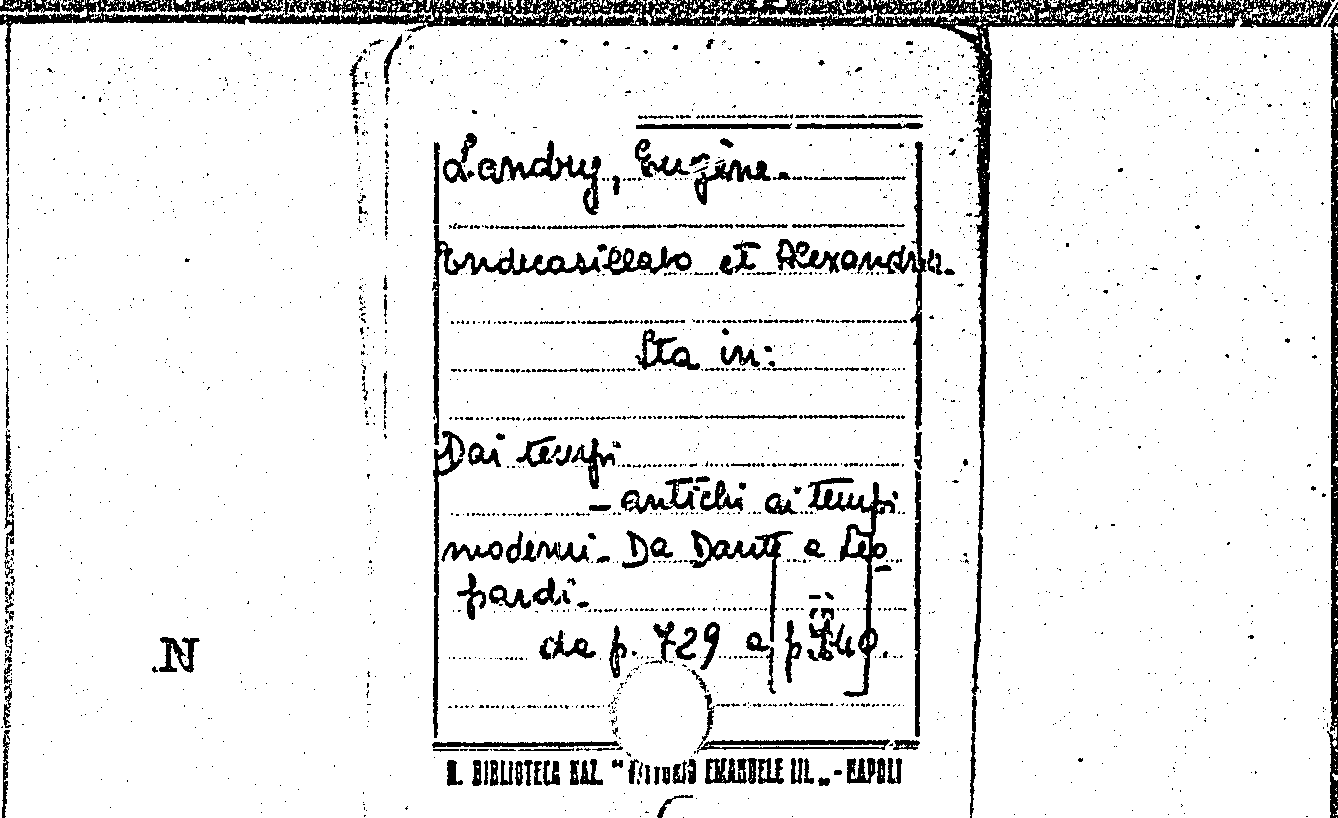 Landry, Eugène.
Endecasillabo et Alexandrin.
Sta in:
Dai tempi
- antichi ai tempi
moderni - Da Dante a Leo
pardi -
da p. 729 a p. 740.
N
R. BIBLIOTECA NAZ. "VITTORIO EMANUELE III„ - NAPOLI